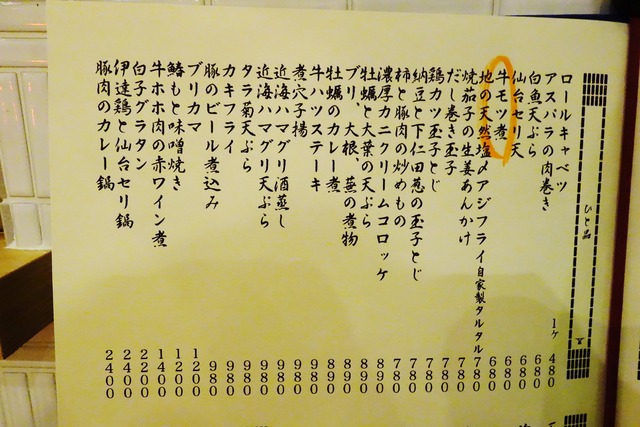 ひと品
ロールキャベツ 1ヶ 480
アスパラの肉巻き 680
白魚天ぷら 680
仙台セリ天 680
牛モツ煮 680
地の天然塩〆アジフライ自家製タルタル 780
焼茄子の生姜あんかけ 780
だし巻き玉子 780
鶏カツ玉子とじ 780
納豆と下仁田葱の玉子とじ 780
柿と豚肉の炒めもの 780
濃厚カニクリームコロッケ 890
牡蠣と大葉の天ぷら 890
ブリ、大根、蕪の煮物 890
牡蠣のカレー煮 890
牛ハツステーキ 890
煮穴子揚 980
近海ハマグリ酒蒸し 980
近海ハマグリ天ぷら 980
タラ菊天ぷら 980
カキフライ 980
豚のビール煮込み 980
ブリカマ 1200
鰆もと味噌焼き 1200
牛ホホ肉の赤ワイン煮 1400
白子グラタン 2200
伊達鶏と仙台セリ鍋 2200
豚肉のカレー鍋 2400